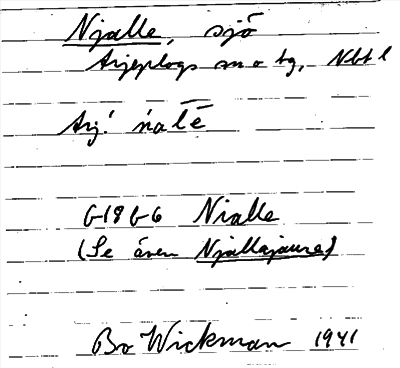 Njalle, sjö
Arjeplogs sn o tg, Nbt l
Arj.
G-18 G-6 Nialle
(Se även Njallajaure)
Bo Wickman 1941